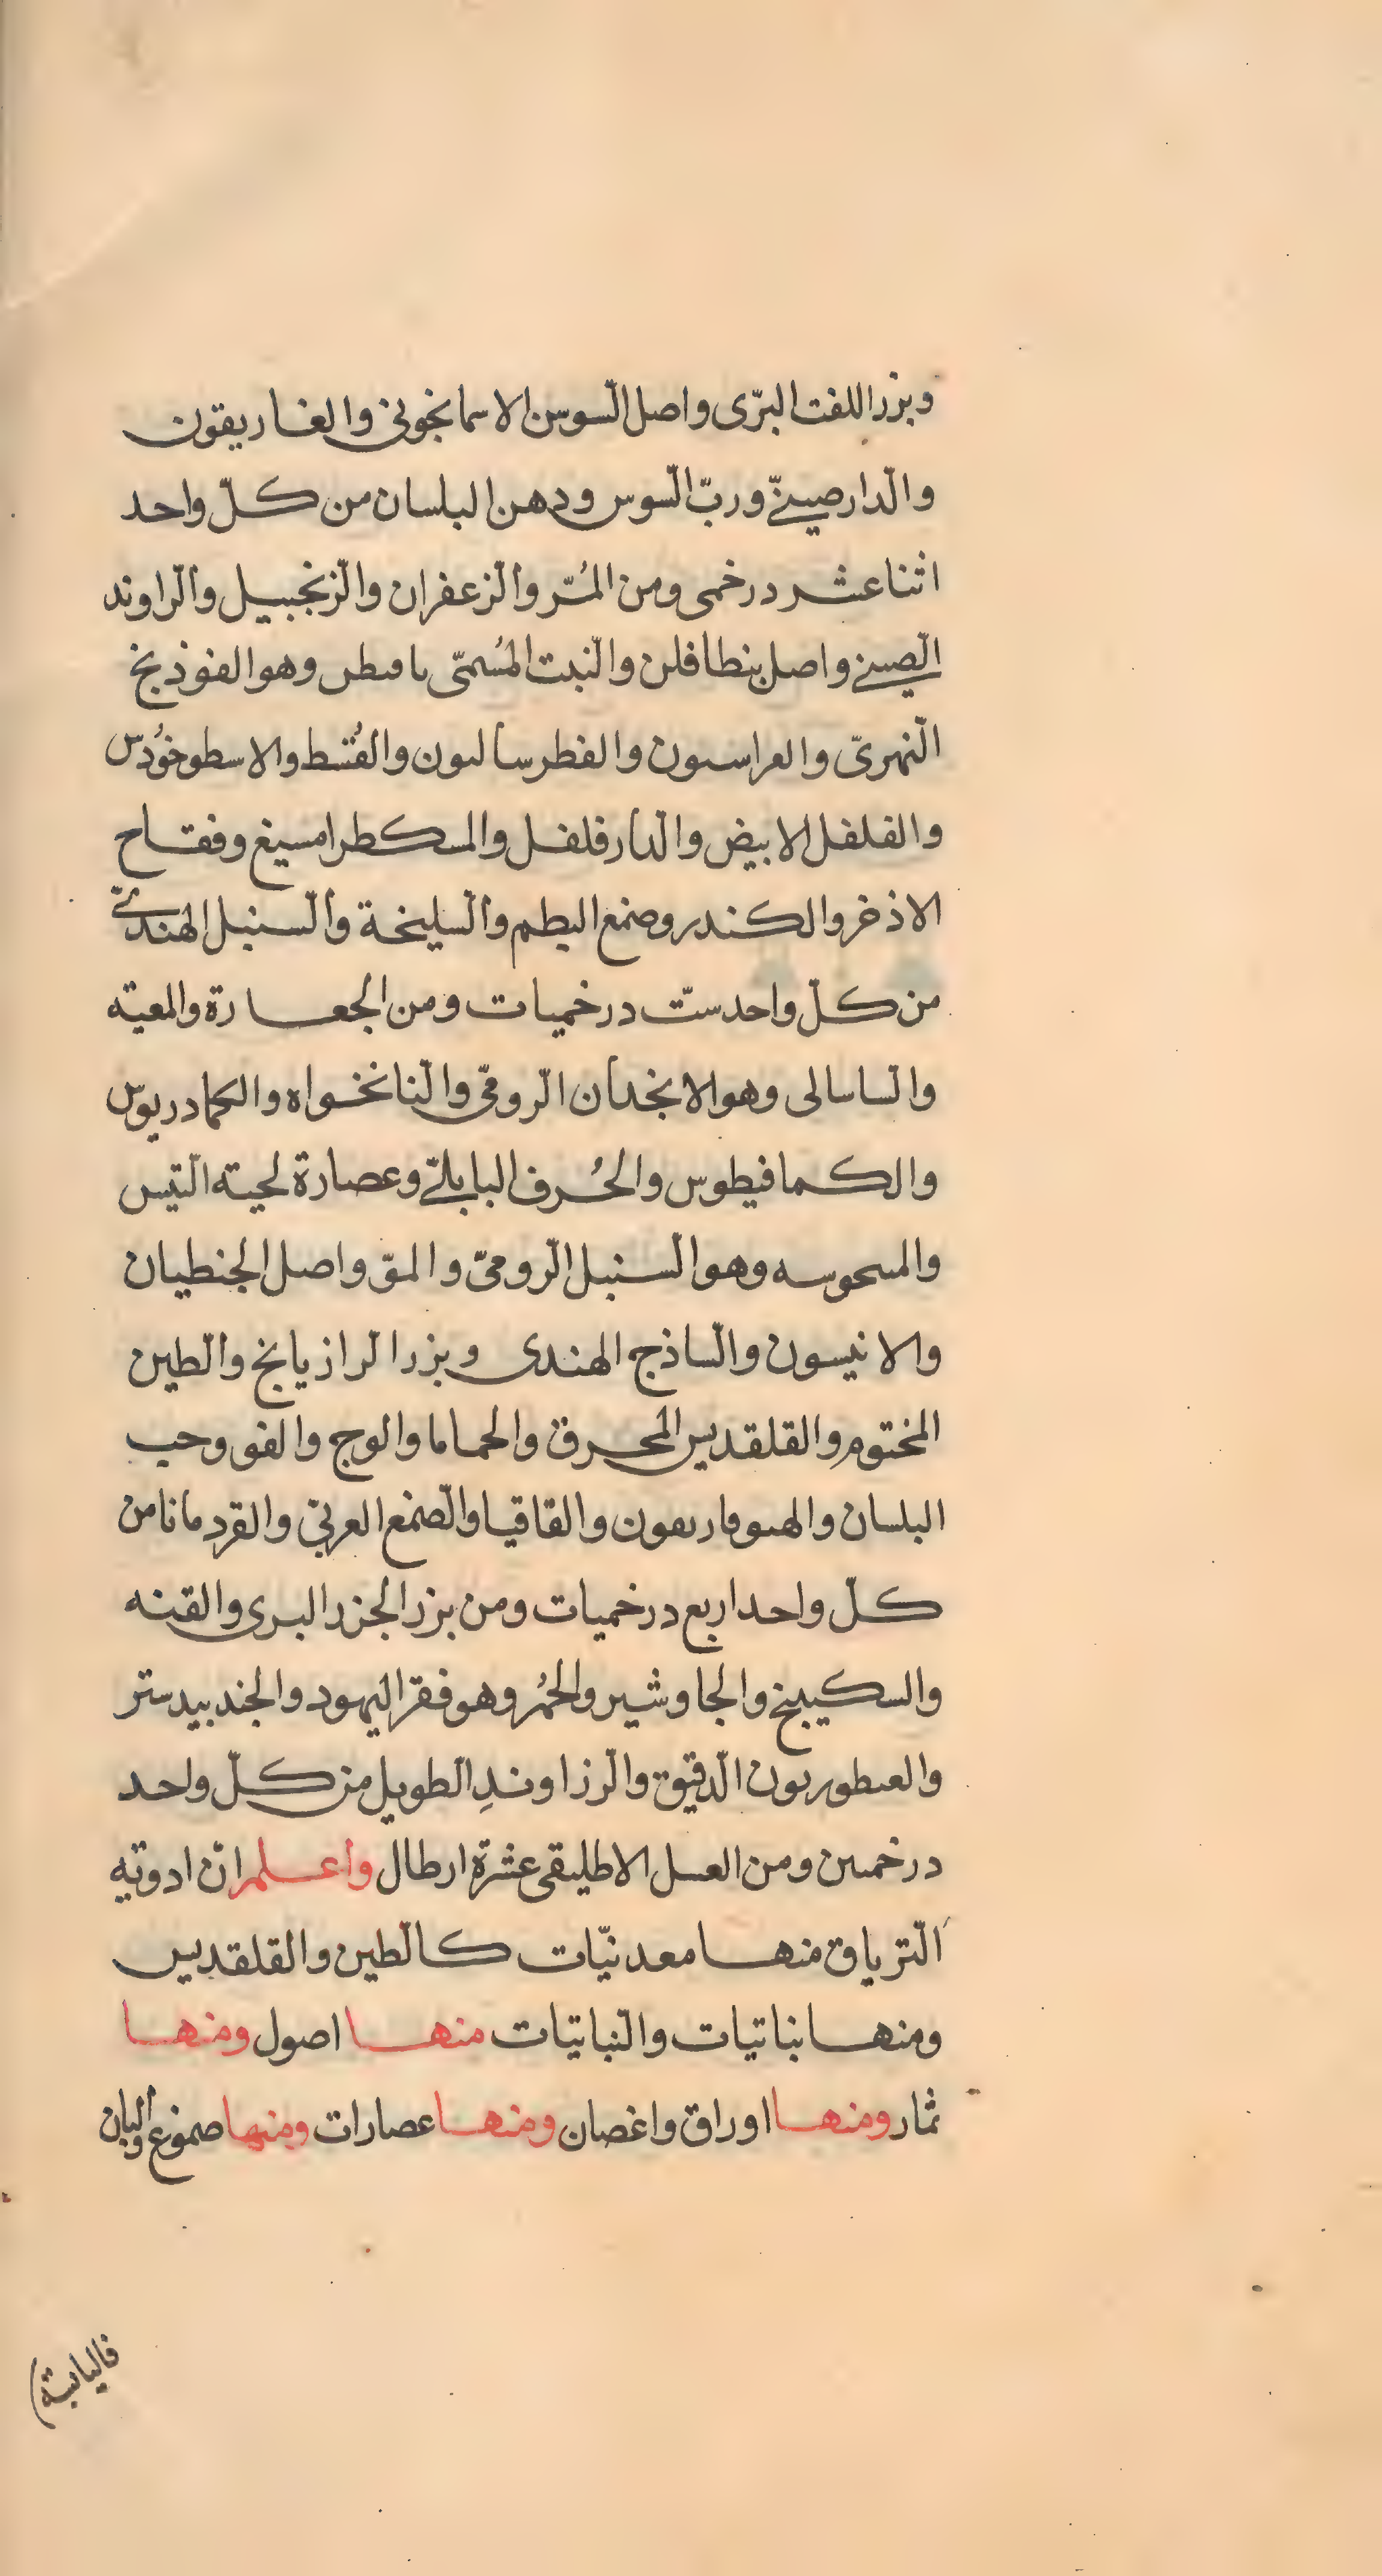 وبزر اللفت البرّى واصل السّوسن الاسمانجونى والغاريقون
والدّارصينىّ وربّ السّوس ودهن البلسان من كلّ واحد
اثنا عشر درخمى ومن المُرّ والزّعفران والزّنجبيل والرّاوند
الصّينى واصل بنطافلن والنّبت المُسمّى وهو الفوذنج
النّهرىّ والفطرسالىون والقُسط والاسطوخُودّس
والفلفل الابيض والدّارفلفل والمسكطرامسيغ وفقاح
الاذخر والكندر وصمغ البطم والسّليخة والسّنبل الهندىّ
من كلّ واحد ستّ درخميات ومن الجعارة والمعية
والساسالى وهو الانجدان الرّومّى والنّانخواه والكمادريوس
والكمافيطوس والحُرف البابلىّ وعصارة لحية التّيس
وهو السّنبل الرّومىّ والموّ واصل الجنطيان
والانيسون والسّاذج الهندى وبزر الرازيانج والطّين
المختوم والقلقديس المحرق والحماما والوج والفو وحب
البلسان والقاقيا والصّمغ العربىّ والقردمانا من
كلّ واحد اربع درخميات ومن بزر الجزر البرى والقنه
والسكبينج والجاوشير والحُمُر وهو فقر اليهود والجندبيدستر
والعىطوريون الدّقيق والرّزاوندِ الطّويل من كلّ واحد
درخمىن ومن العسل الاطليقى عشرة ارطال واعلم انّ ادوية
التّرياق منها معدنيّات كالطّين والقلقديس
ومنها نباتيات والنّباتيات منها اصول ومنها
ثمار ومنها اوراق واغصان ومنها عصارات ومنها صموغ والبان
فاليابسة